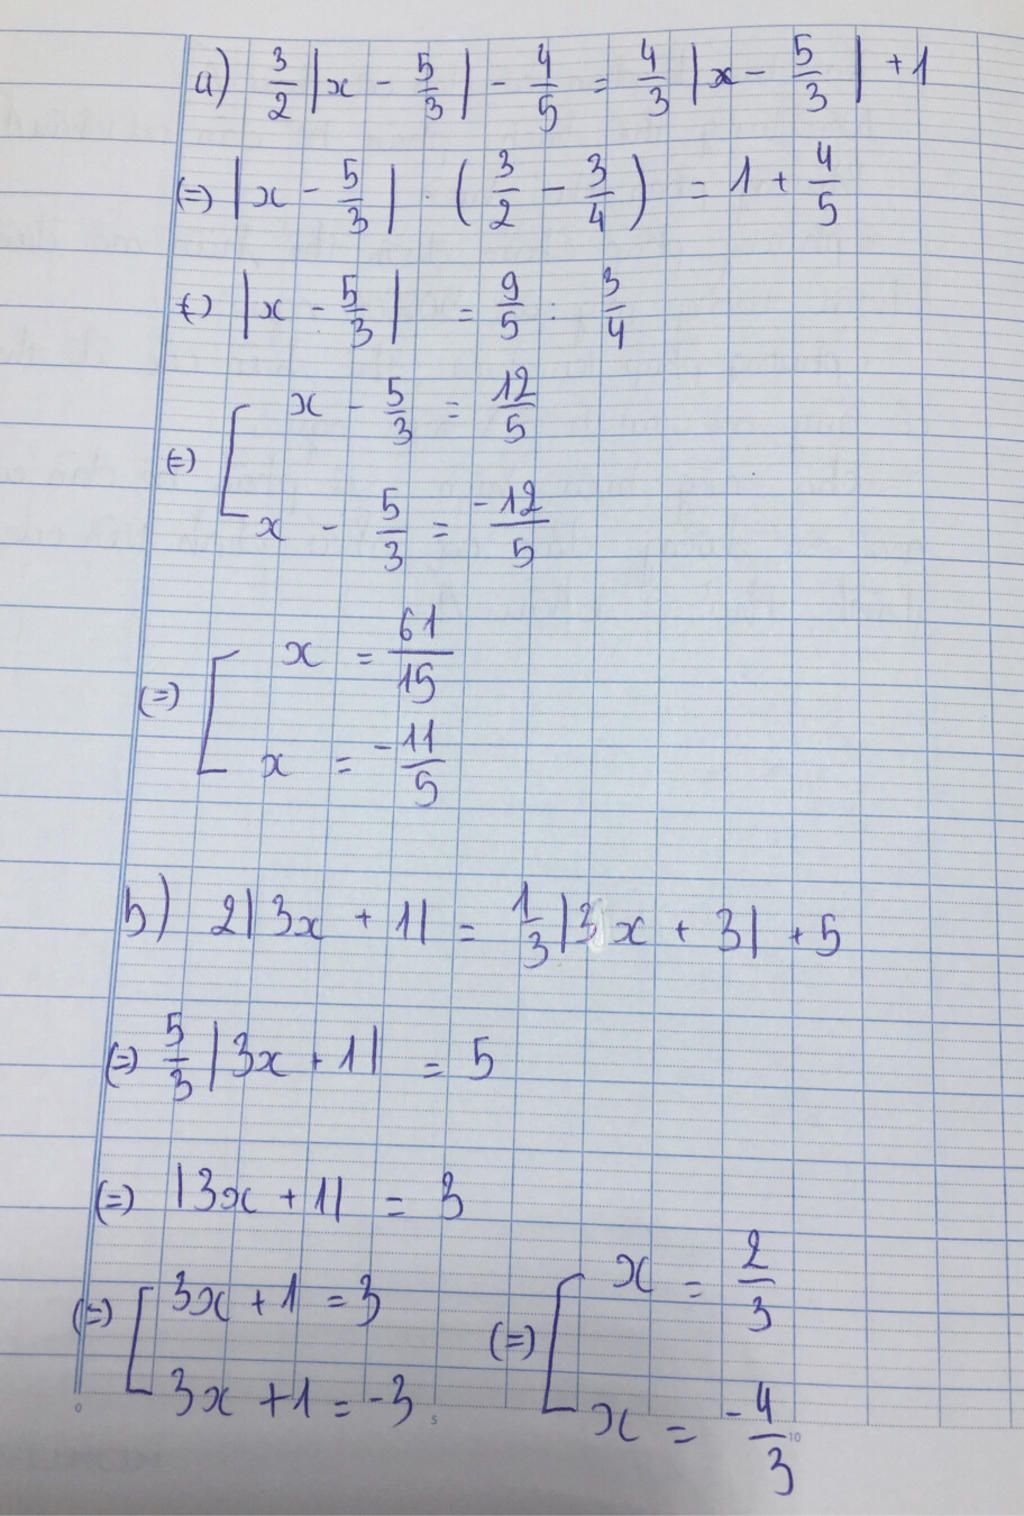 a) 3/2 |x - 5/3| - 4/5 = 4/3 |x - 5/3| + 1
(=) |x - 5/3| . (3/2 - 3/4) = 1 + 4/5
(=) |x - 5/3| = 9/5 : 3/4
(=) [ x - 5/3 = 12/5
x - 5/3 = -12/5
(=) [ x = 61/15
x = -11/5
b) 2|3x + 1| = 1/3 |3x + 3| + 5
(=) 5/3 |3x + 1| = 5
(=) |3x + 1| = 3
(=) [ 3x + 1 = 3
3x + 1 = -3
(=) [ x = 2/3
x = -4/3
0 5 10